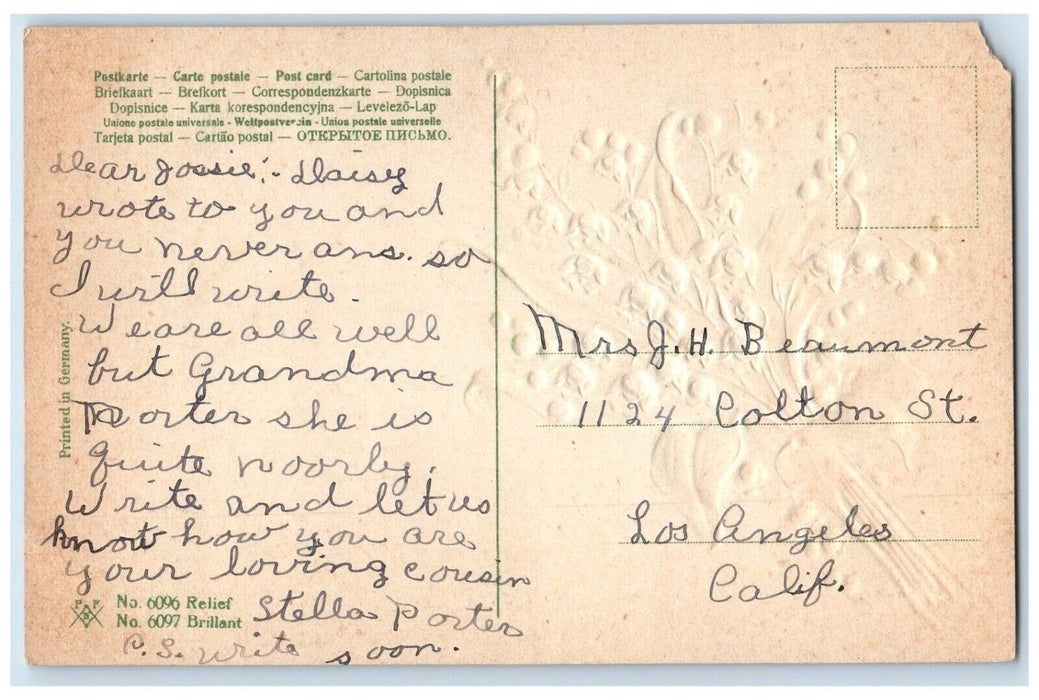 Postkarte — Carte postale — Post card — Cartolina postale
Briefkaart — Brefkort — Correspondenzkarte — Dopisnica
Dopisnice — Karta korespondencyjna — Levelező-Lap
Unione postale universale - Weltpostverein - Union postale universelle
Tarjeta postal — Cartão postal — ОТКРЫТОЕ ПИСЬМО.
Dear Jossie:- Daisy
wrote to you and
you never ans. so
I will write.
We are all well
but Grandma
Porter she is
quite poorly.
Write and let us
know how you are
your loving cousin
Stella Porter
P.S. write soon.
Printed in Germany.
PFB
No. 6096 Relief
No. 6097 Brillant
Mrs J. H. Beaumont
1124 Colton St.
Los Angeles
Calif.